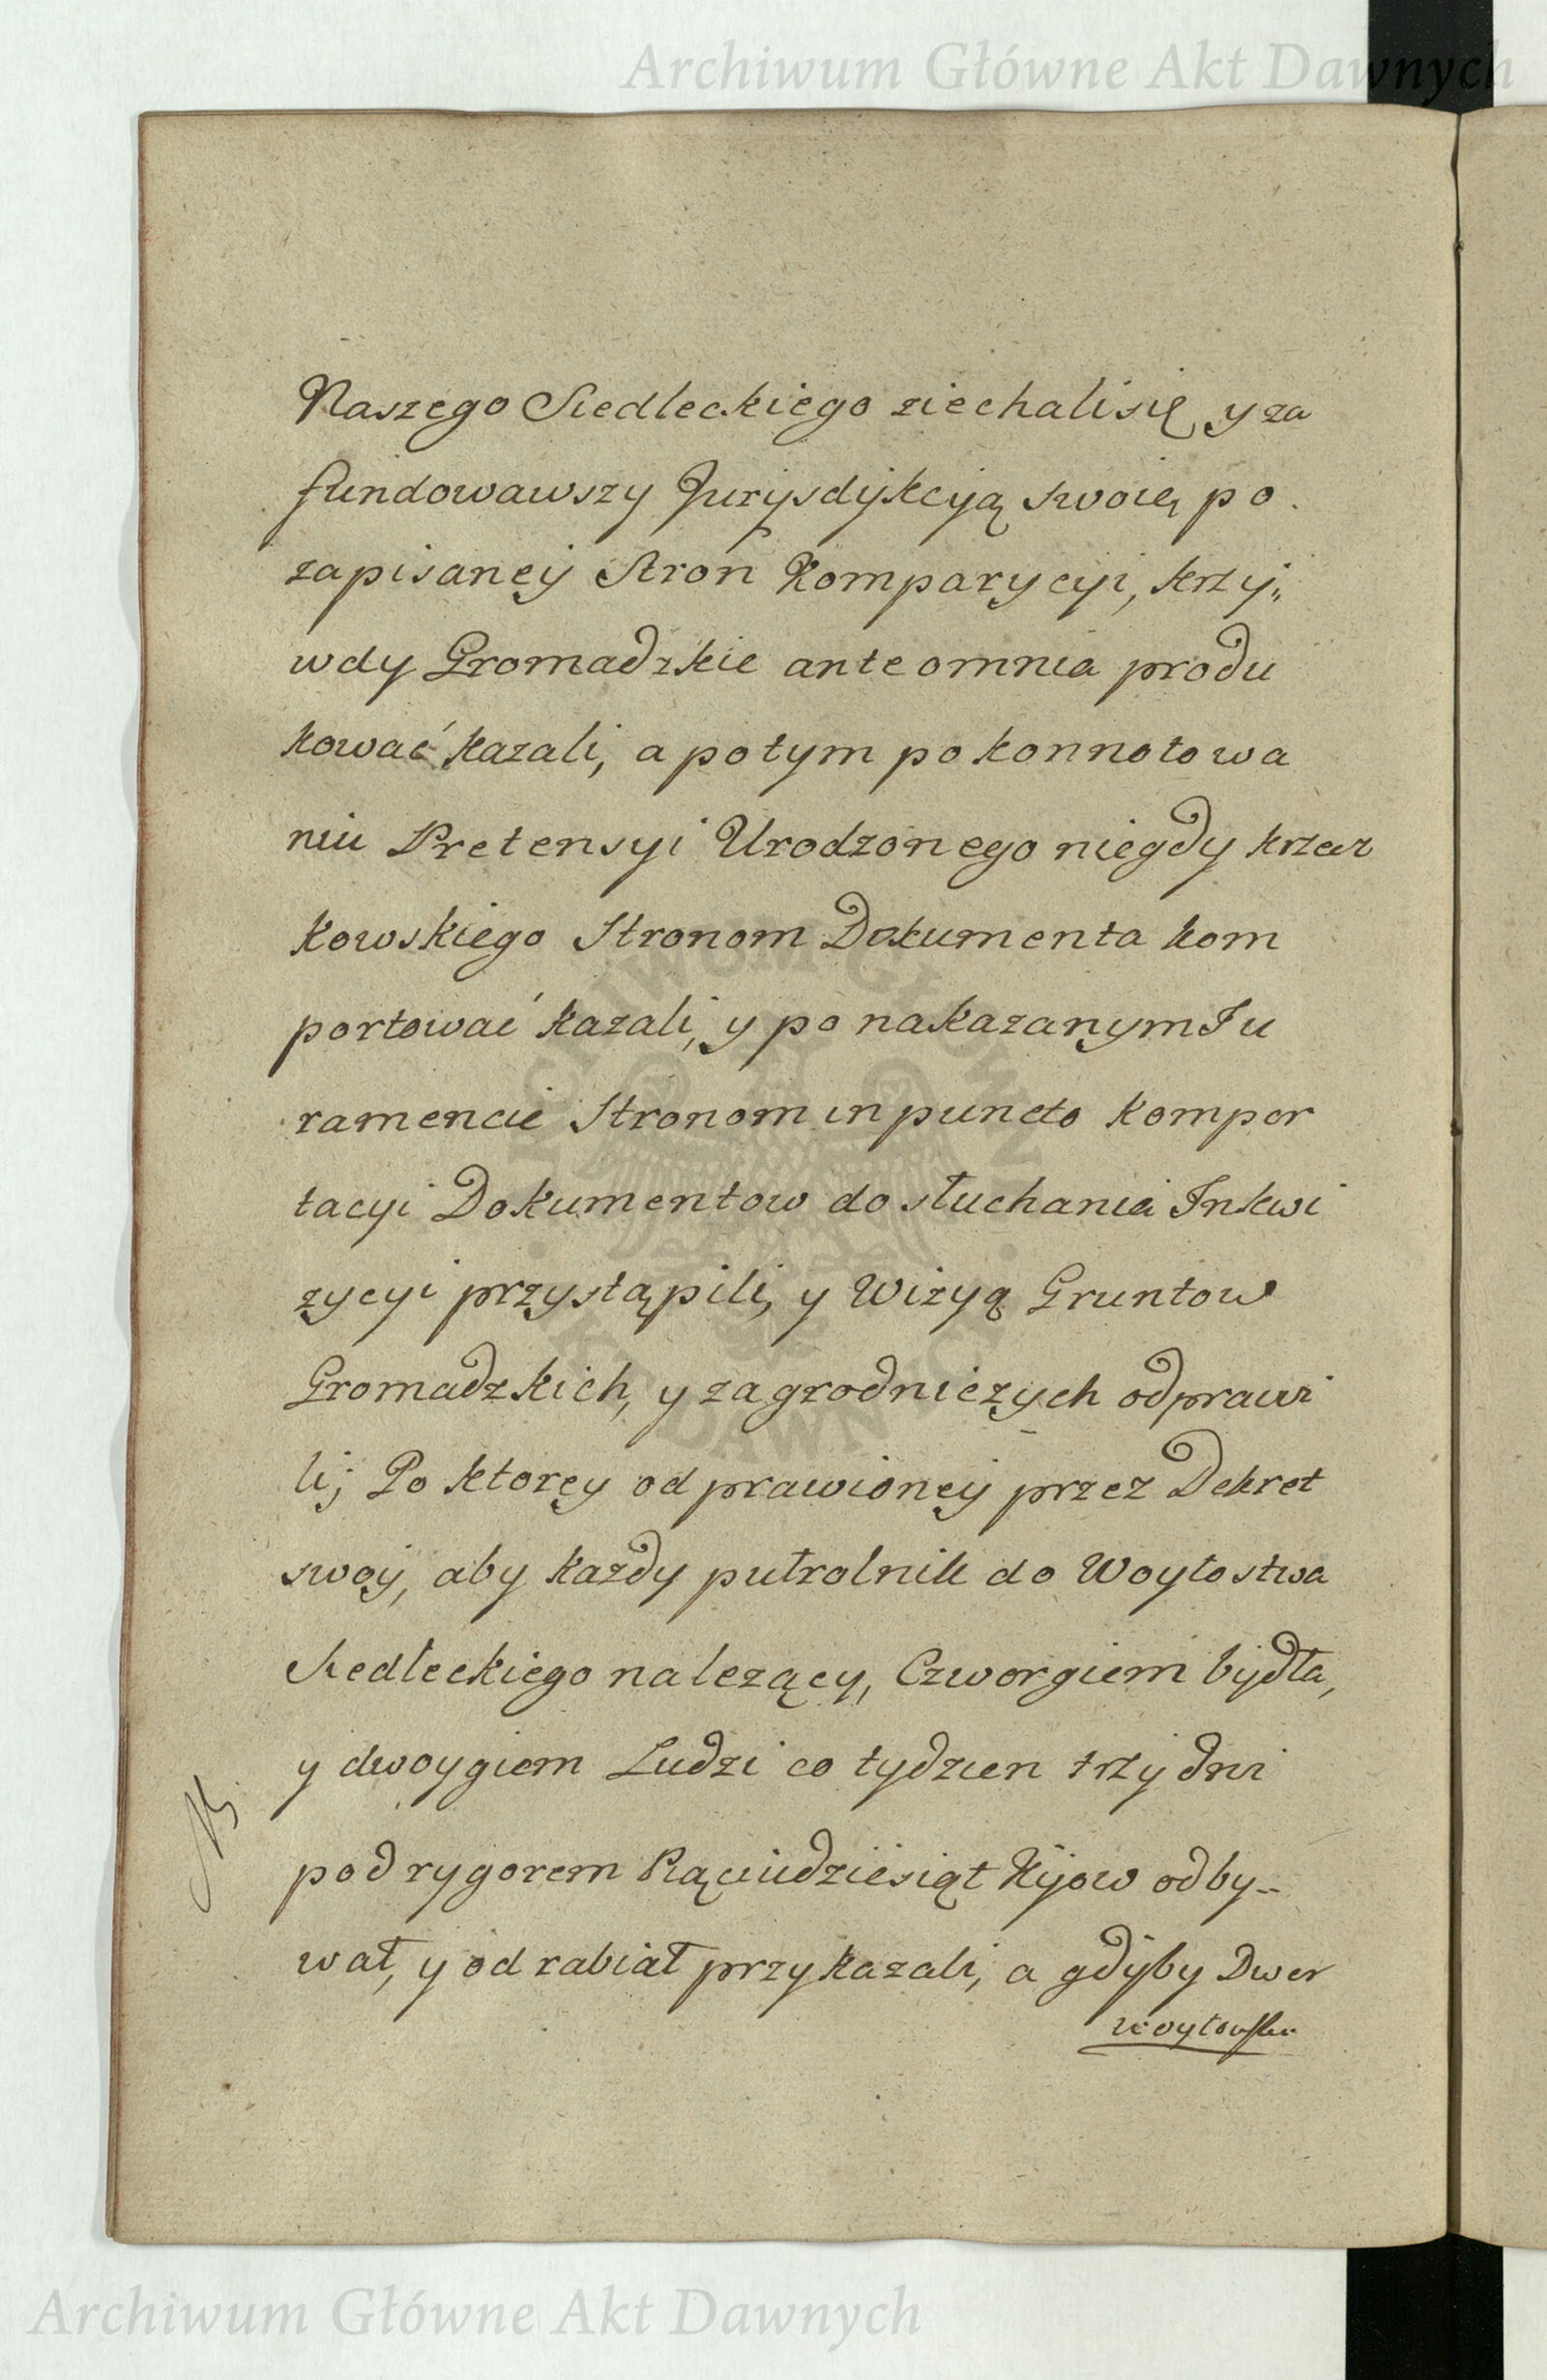 Archiwum Główne Akt Dawnych
Naszego Siedleckiego ziechali się y za
fundowawszy Jurysdykcyją swoię po
zapisaney Stron Komparycyi, krzy„
wdy Gromadzkie ante omnia produ
kować kazali, a potym po konnotowa
niu Pretensyi Urodzonego niegdy krzecz
kowskiego Stronom Dokumenta kom
portować kazali, y po nakazanym Ju
ramencie Stronom in puncto kompor
tacyi Dokumentow do słuchania Inkwi
zycyi przystąpili, y Wizyą Gruntow
Gromadzkich, y zagrodniczych odprawi
li; Po ktorey odprawioney przez Dekret
swoy, aby każdy pułrolnik do Woytostwa
Siedleckiego należący, Czworgiem bydła,
y dwoygiem Ludzi co tydzien trzy dni
NB.
pod rygorem Pięciudziesiąt Kijow odby-
wał, y odrabiał przykazali, a gdyby Dwor
woytowski
ARCHIWUM GŁÓWNE
AKT DAWNYCH
Archiwum Główne Akt Dawnych